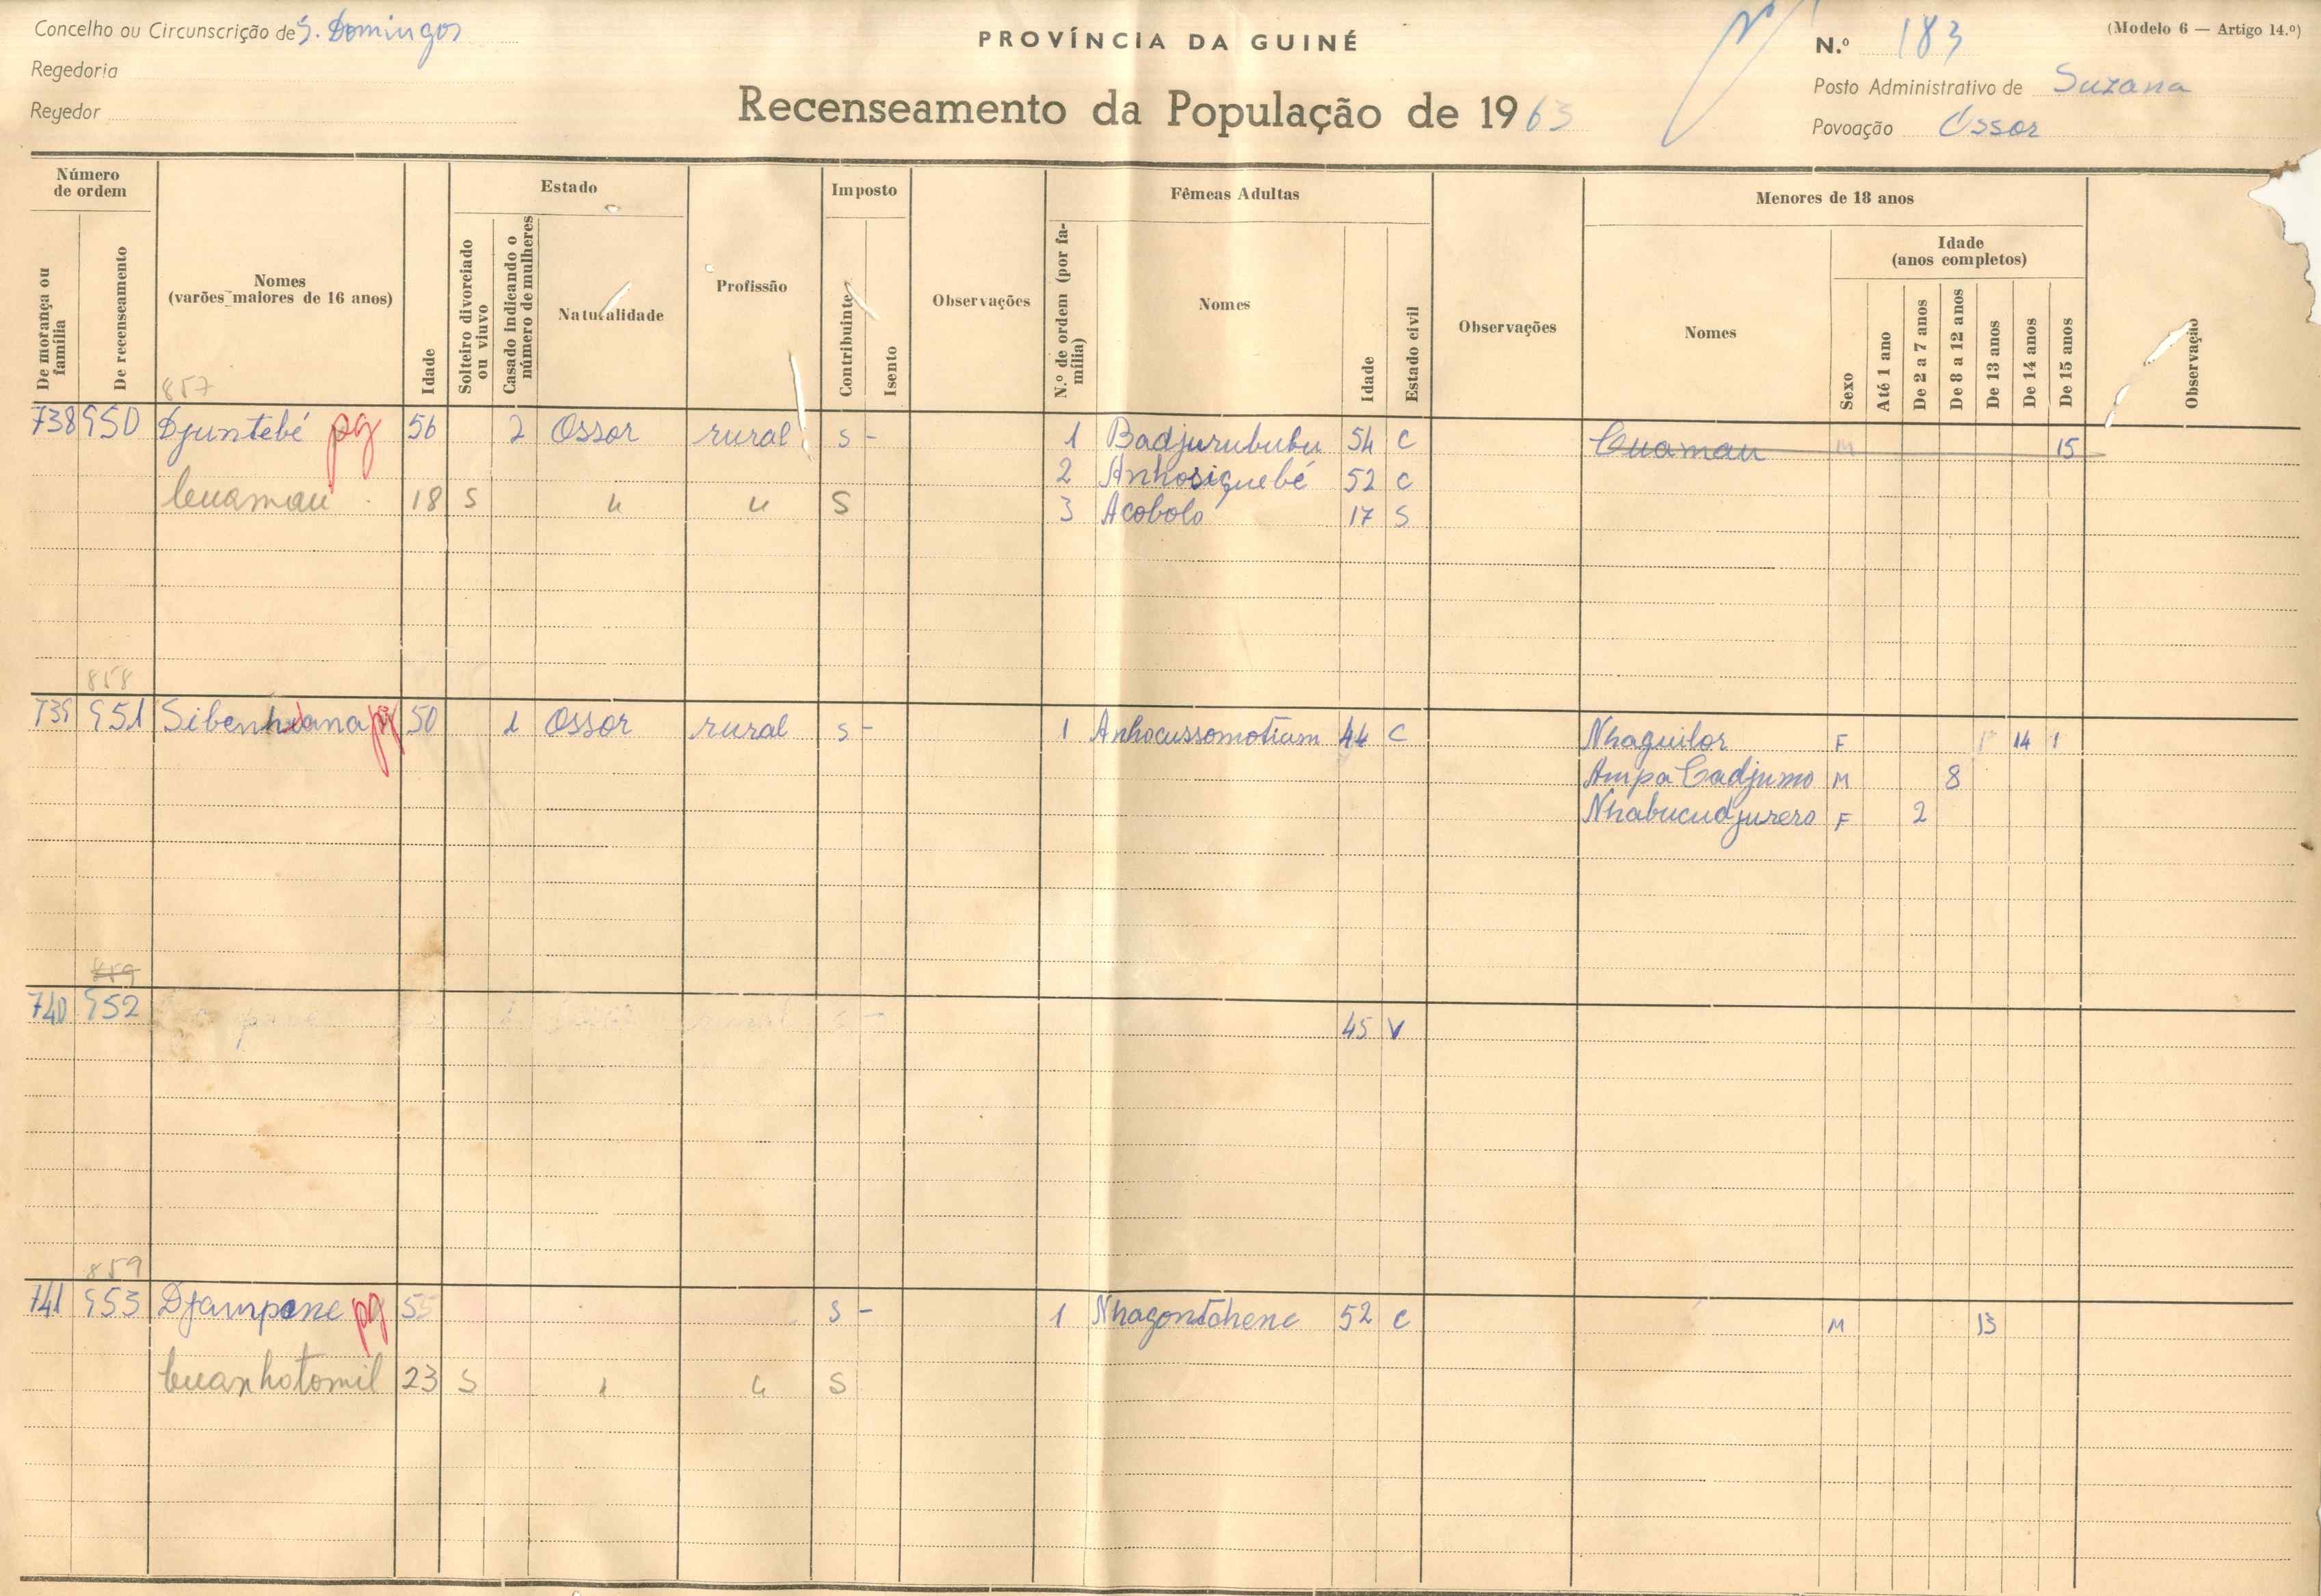 Concelho ou Circunscrição de S. Domingos
Regedoria
Regedor
PROVÍNCIA DA GUINÉ
Recenseamento da População de 1963
(Modelo 6 — Artigo 14.º)
N.º 183
Posto Administrativo de Suzana
Povoação Ossor
Número de ordem
De morança ou família
De recenseamento
Nomes
(varões maiores de 16 anos)
Idade
Estado
Solteiro divorciado ou viuvo
Casado indicando o número de mulheres
Naturalidade
Profissão
Imposto
Contribuinte
Isento
Observações
Fêmeas Adultas
N.º de ordem (por família)
Nomes
Idade
Estado civil
Observações
Menores de 18 anos
Nomes
Sexo
Idade
(anos completos)
Até 1 ano
De 2 a 7 anos
De 8 a 12 anos
De 13 anos
De 14 anos
De 15 anos
Observação
857
738 950 Djuntebé pg 56 2 Ossor rural s - 1 Badjurububu 54 C Cuamau M 15
2 Anhosiquebé 52 C
Cuamau 18 S " " S 3 Acobolo 17 S
858
739 951 50 1 Ossor rural s - 1 Anhocussomotiam 44 C Nhaguilor F 14
Ampa Cadjumo M 8
Nhabucudjurero F 2
859
740 952 s - 45 V
859
741 953 Djampene pg 55 s - 1 52 C M 13
Cuanhotomil 23 S " " S